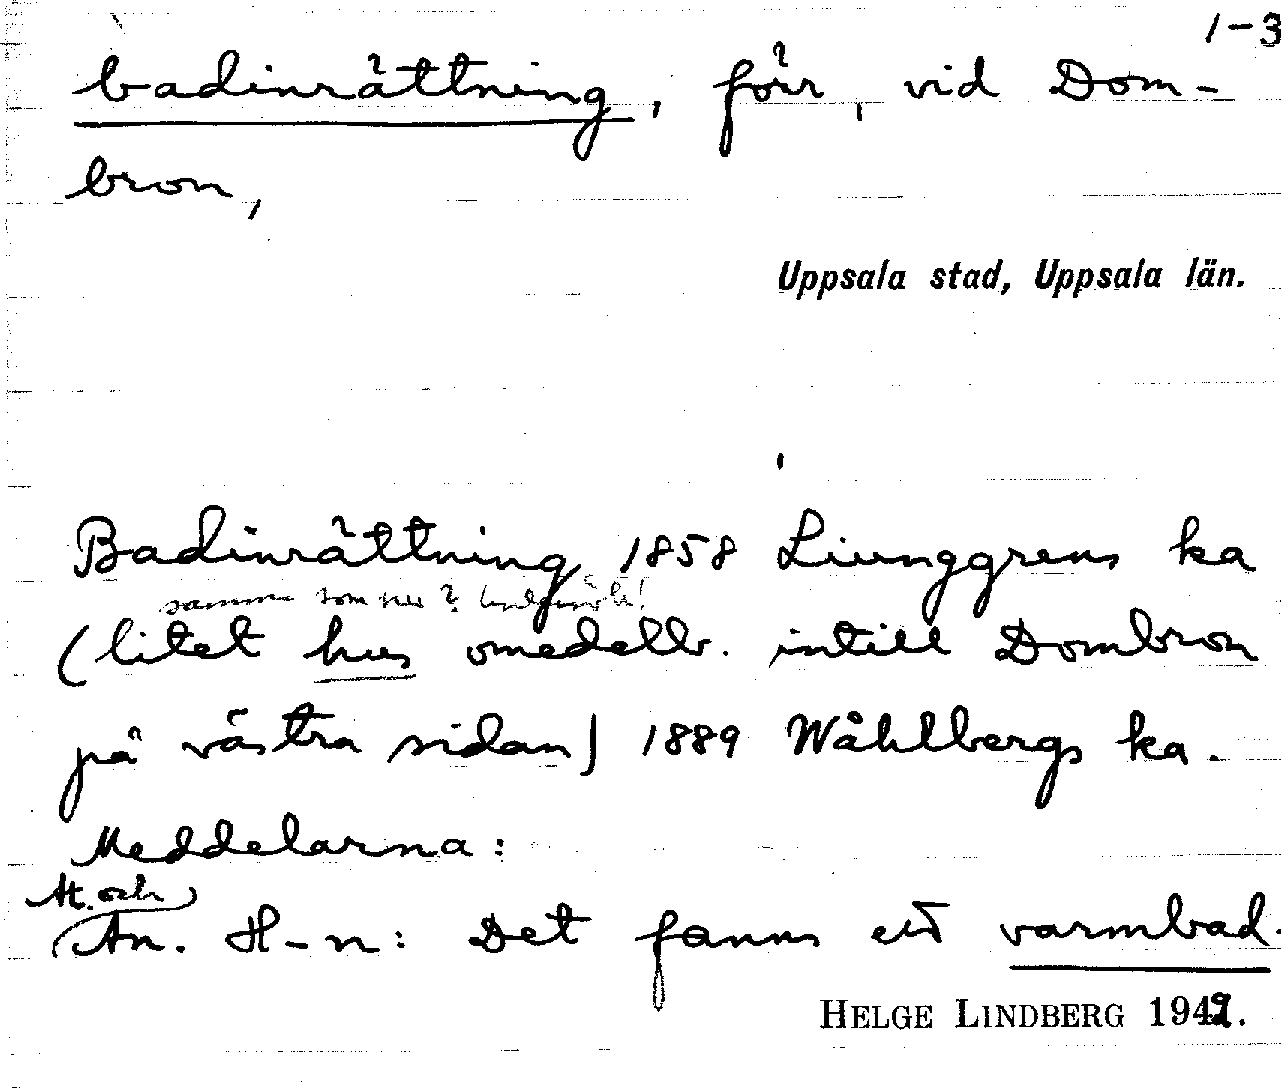 1-3
badinrättning, förr, vid Dom-
bron,
Uppsala stad, Uppsala län.
Badinrättning 1858 Liunggrens ka
samma som ner?
(litet hus omedelb. intill Dombron
på västra sidan) 1889 Wåhlbergs ka.
Meddelarna:
At. och
An. H-n: Det fanns ett varmbad.
HELGE LINDBERG 1949.